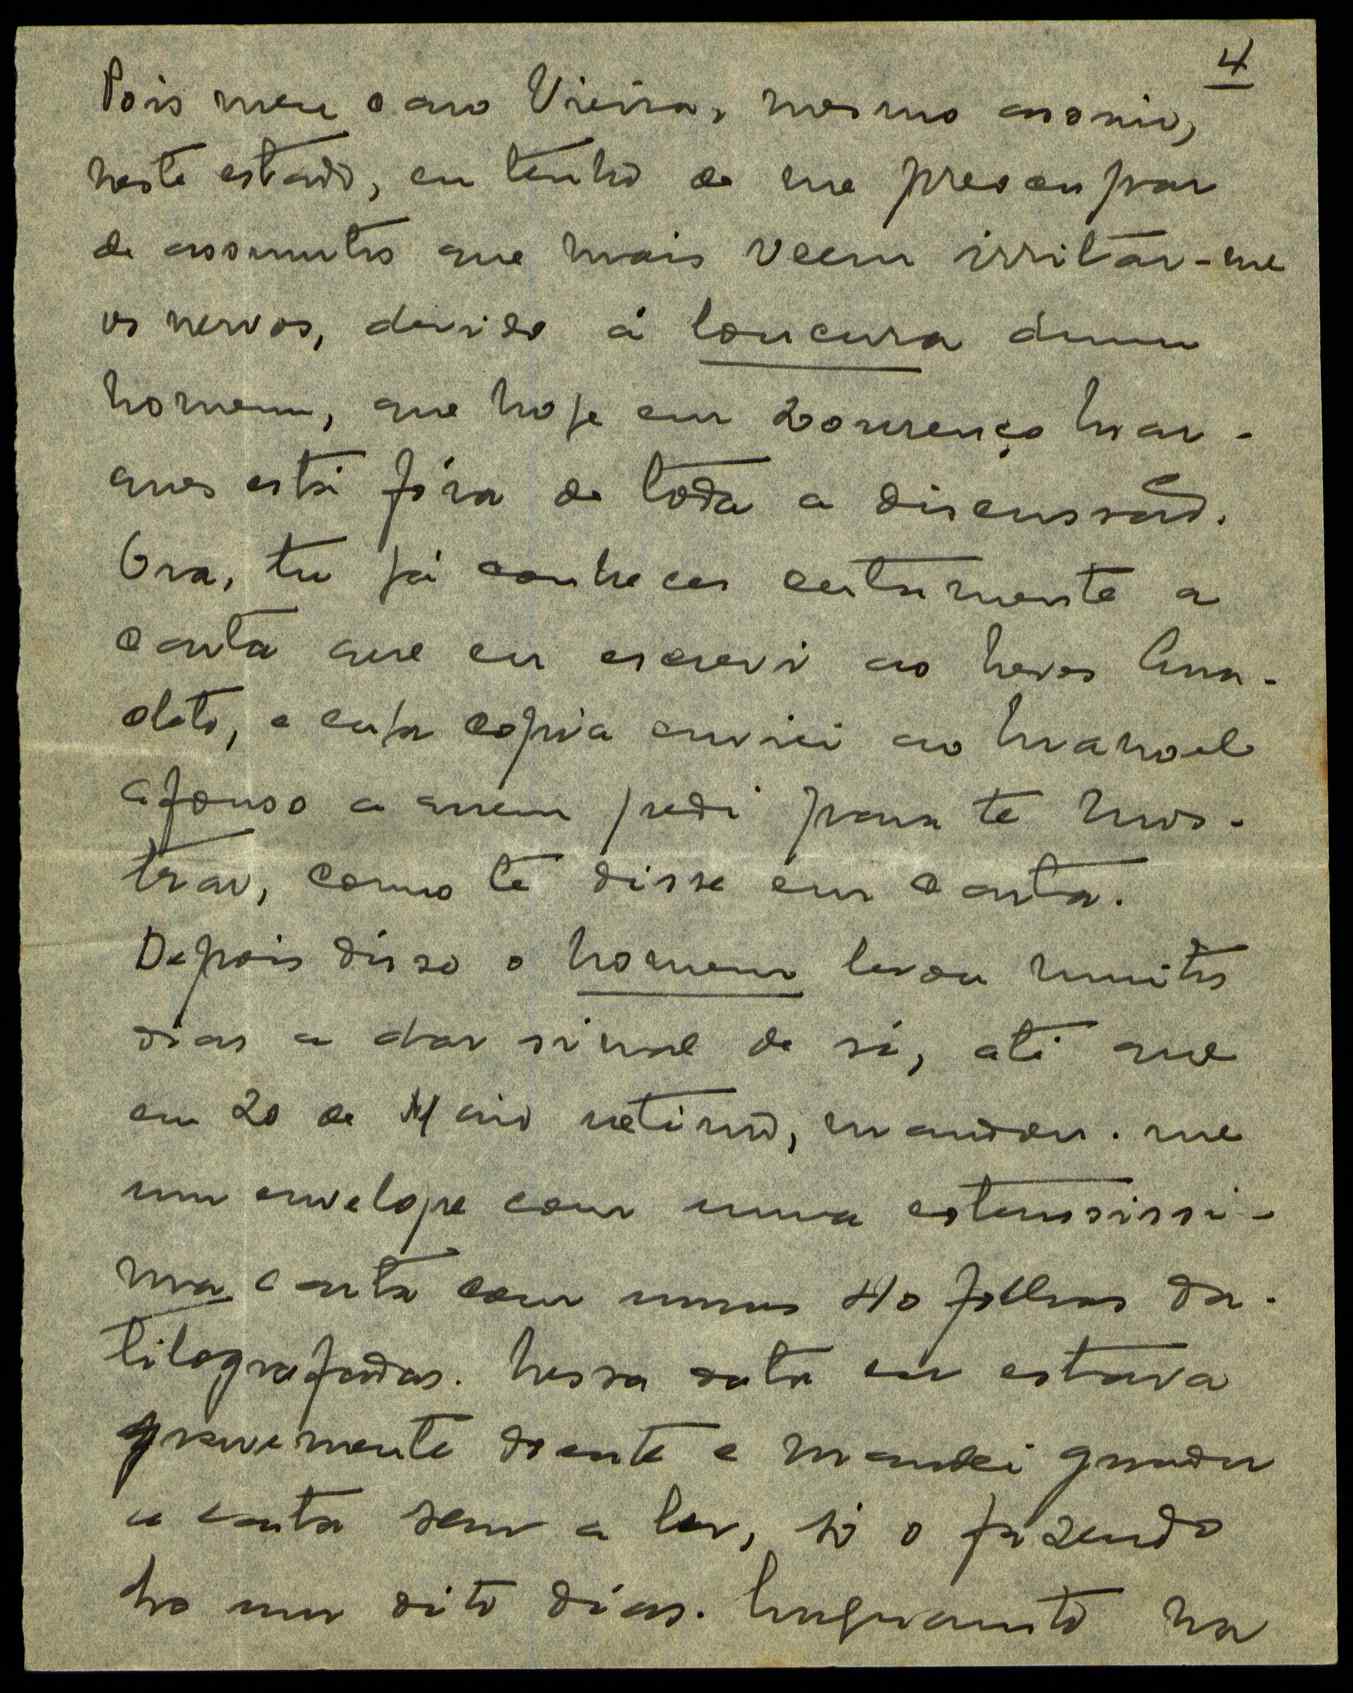 4
Pois meu caro Vieira, mesmo assim,
neste estado, eu tenho de me preocupar
de assuntos que mais veem irritar-me
os nervos, devido á loucura dum
homem, que hoje em Lourenço Mar-
ques está fóra de toda a discussão.
Ora, tu já conheces certamente a
carta que eu escrevi ao Neves Ana-
cleto, e cuja copia enviei ao Manoel
Afonso a quem pedi para te mos-
trar, como te disse em carta.
Depois disso o homem levou muitos
dias a dar sinal de si, até que
em 20 de Maio ultimo, mandou-me
um envelope com uma estensissi-
ma carta com umas 40 folhas da-
tilografadas. Nessa data eu estava
gravemente doente e mandei guardar
a carta sem a ler, só o fazendo
ha uns oito dias. Emquanto na